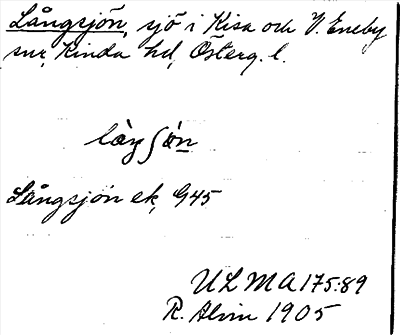 Långsjön, sjö i Kisa och V. Eneby
snr, Kinda hd, Österg. l.
Långsjön ek, G45
ULMA 175:89
R. Alvin 1905